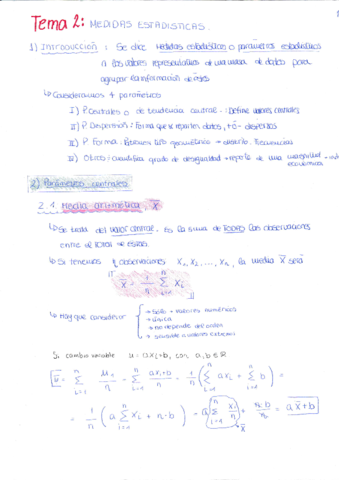 Tema 2: MEDIDAS ESTADISTICAS.
1) Introducción: Se dice Medidas estadísticos o parámetros estadísticos
a los valores representativos de una masa de datos para
agrupar la información de
↳ Consideramos 4 parámetros
I) P. Centrales o de tendencia central: Define valores centrales
II) P. Dispersión: Forma que se reparten datos, +ó- dispersos
III) P. Forma.
IV) Otros: cuantifica grado de desigualdad reparto de una magnitud
económica
2) Parámetros centrales
2.1 Media aritmética, X̄
↳ Se trata del valor central. Es la suma de TODAS las observaciones
entre el total de éstas.
↳ Si tenemos observaciones X₁, X₂, ..., Xₙ, la media X̄ será
X̄ = 1/n Σ Xᵢ
↳ Hay que considerar
→ Sólo valores numéricos
→ Única
→ no depende del orden
→ sensible a valores extremos
Si cambio variable u = axᵢ+b, con a,b∈ℝ
ū = Σ uᵢ/n = Σ (axᵢ+b)/n = 1/n (Σ axᵢ + Σ b) =
= 1/n (a Σ xᵢ + n·b) = a Σ xᵢ/n + n·b/n = a x̄ + b
x̄